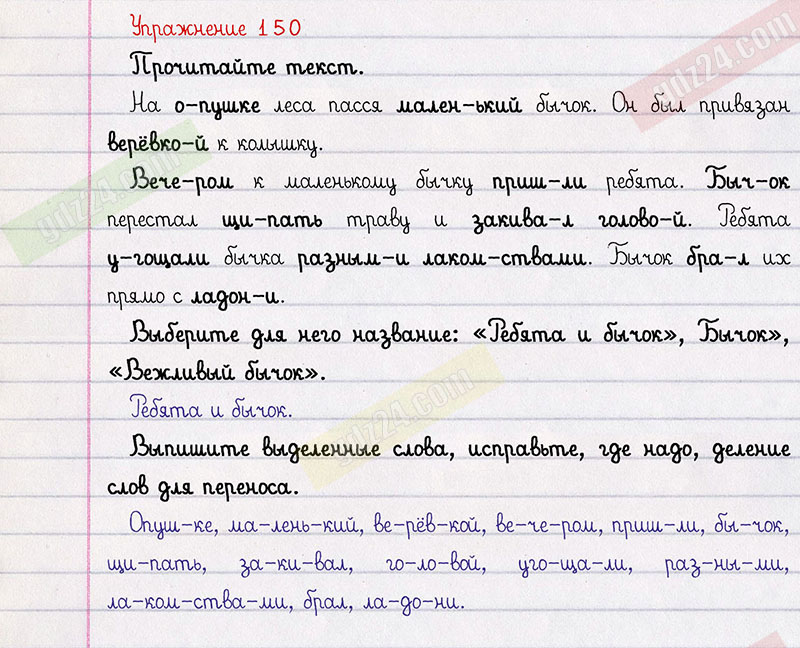 Упражнение 150
Прочитайте текст.
На о-пушке леса пасся мален-ький бычок. Он был привязан
верёвко-й к колышку.
Вече-ром к маленькому бычку приш-ли ребята. Быч-ок
перестал щи-пать траву и закива-л голово-й. Ребята
у-гощали бычка разным-и лаком-ствами. Бычок бра-л их
прямо с ладон-и.
Выберите для него название: «Ребята и бычок», Бычок»,
«Вежливый бычок».
Ребята и бычок.
Выпишите выделенные слова, исправьте, где надо, деление
слов для переноса.
Опуш-ке, ма-лень-кий, ве-рёв-кой, ве-че-ром, приш-ли, бы-чок,
щи-пать, за-ки-вал, го-ло-вой, уго-ща-ли, раз-ны-ми,
ла-ком-ства-ми, брал, ла-до-ни.
gdz24.com
gdz24.com
gdz24.com